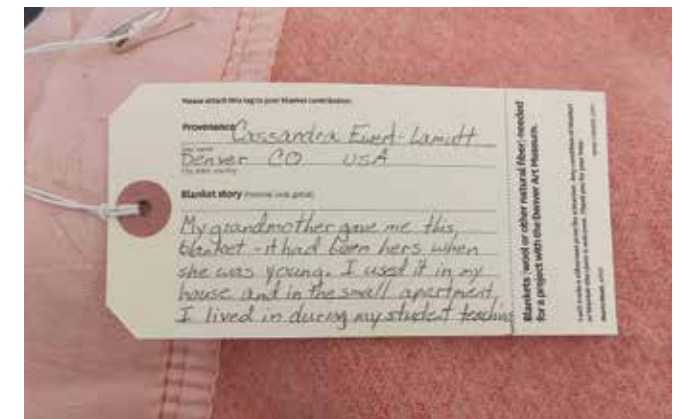 Please attach this tag to your blanket contribution.
Provenance Cassandra
Denver CO USA
City, state, country
Blanket story
My grandmother gave me this
blanket - it had been hers when
she was young. I used it in my
house and in the small apartment
I lived in during my student teaching
Blankets (wool or other natural fiber) needed
for a project with the Denver Art Museum.